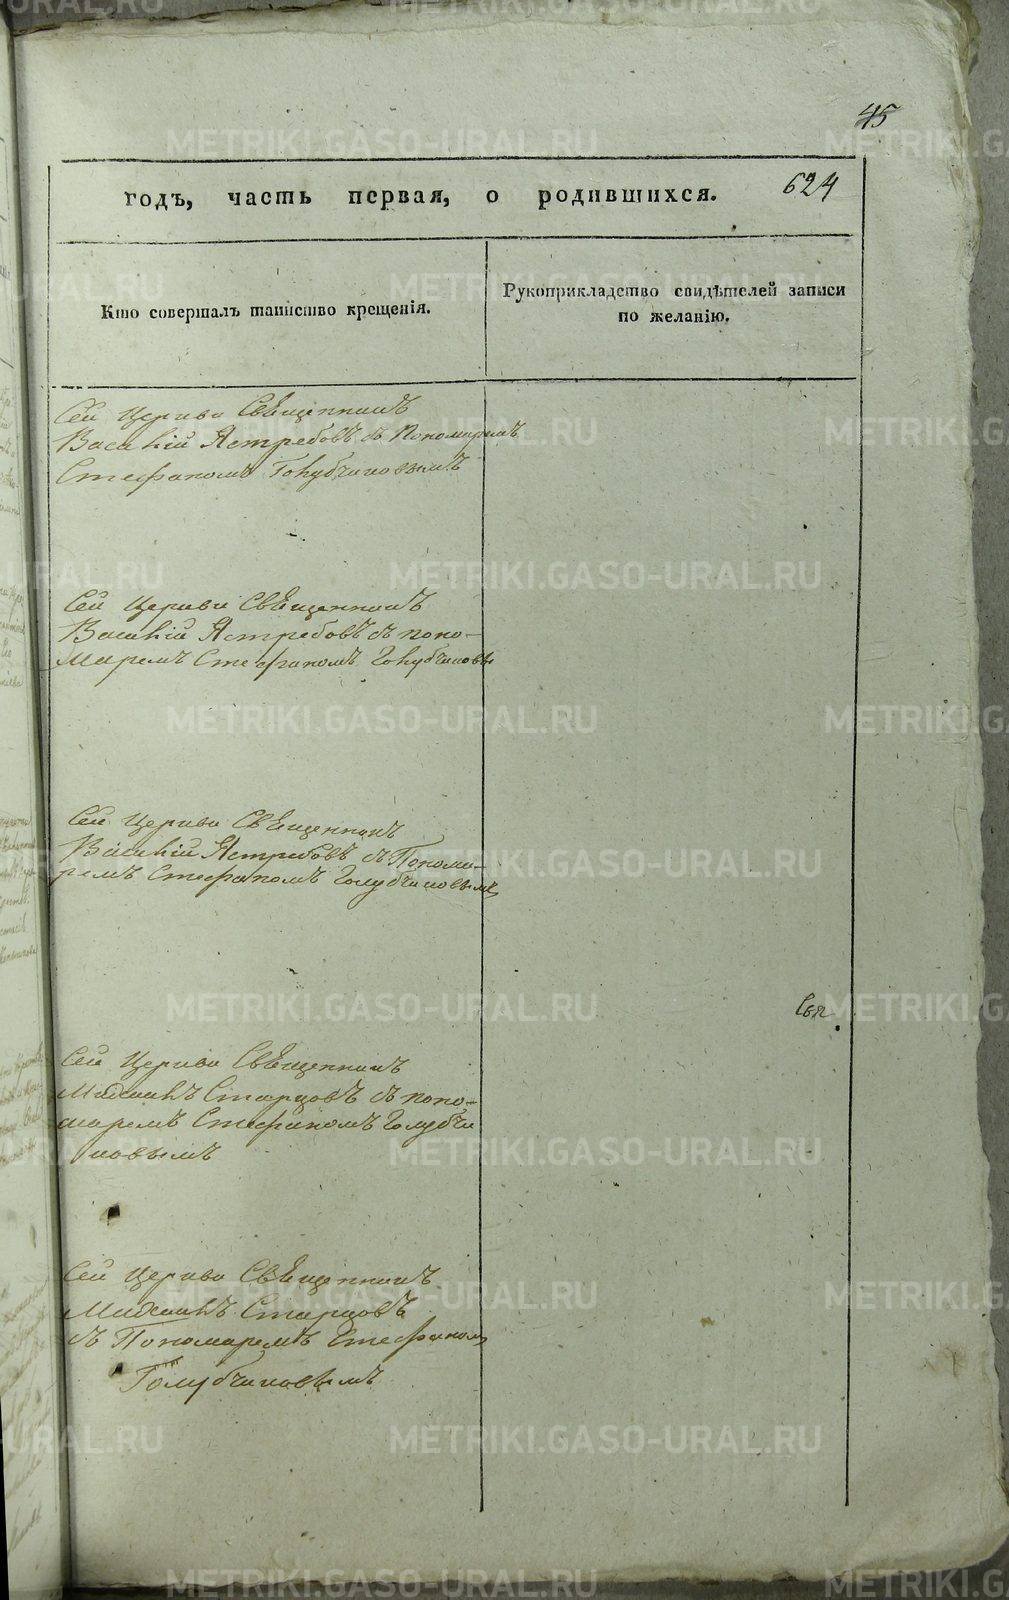 45
624
годъ, часть первая, о родившихся.
Кто совершалъ таинство крещенія.
Рукоприкладство свидѣтелей записи
по желанію.
Сей Церкви Священникъ
Василій Ястребовъ съ Пономаремъ
Стефаномъ Голубчиковымъ
Сей Церкви Священникъ
Василій Ястребовъ съ поно-
маремъ Стефаномъ Голубчиковы
Сей Церкви Священникъ
Василій Ястребовъ съ Понома-
ремъ Стефаномъ Голубчиковымъ
Сей Церкви Священникъ
Михаилъ Старцовъ съ поно-
маремъ Стефаномъ Голубчи
ковымъ
Сей Церкви Священникъ
Михаилъ Старцовъ
съ Пономаремъ Стефаном
Голубчиковымъ
METRIKI.GASO-URAL.RU